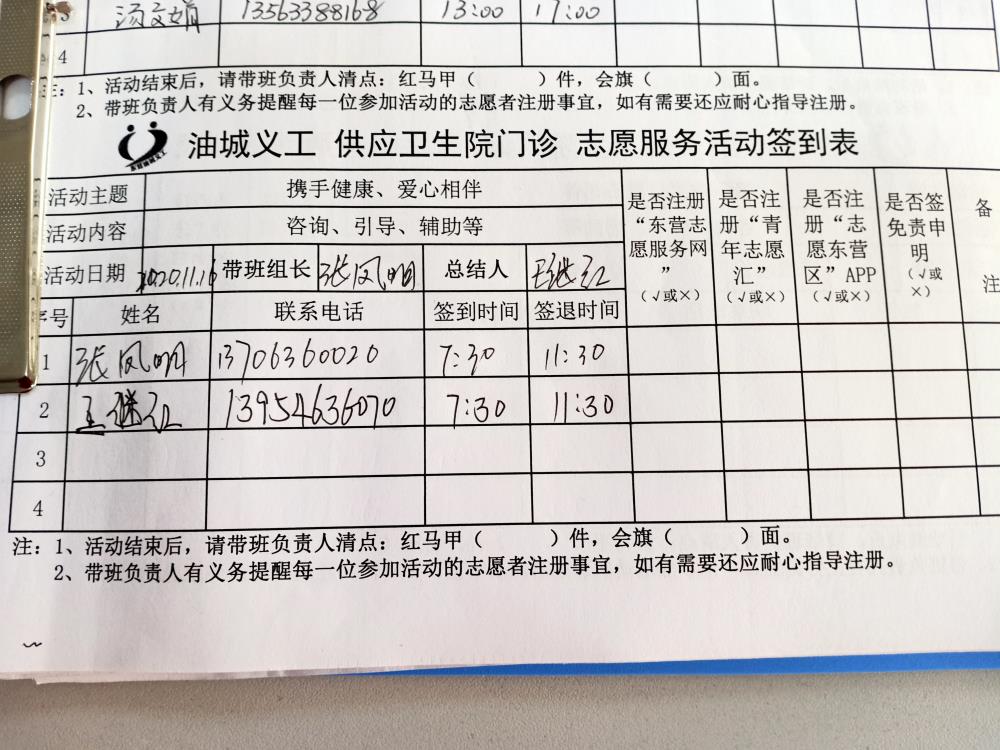 汤文娟 13563388168 13:00 17:00
4
注：1、活动结束后，请带班负责人清点：红马甲（ ）件，会旗（ ）面。
2、带班负责人有义务提醒每一位参加活动的志愿者注册事宜，如有需要还应耐心指导注册。
油城义工 供应卫生院门诊 志愿服务活动签到表
活动主题 携手健康、爱心相伴 是否注册“东营志愿服务网”（√或×） 是否注册“青年志愿汇”（√或×） 是否注册“志愿东营区”APP（√或×） 是否签免责申明（√或×） 备注
活动内容 咨询、引导、辅助等
活动日期 2020.11.16 带班组长 张凤明 总结人 王继红
序号 姓名 联系电话 签到时间 签退时间
1 张凤明 13706360020 7:30 11:30
2 王继红 13954636070 7:30 11:30
3
4
注：1、活动结束后，请带班负责人清点：红马甲（ ）件，会旗（ ）面。
2、带班负责人有义务提醒每一位参加活动的志愿者注册事宜，如有需要还应耐心指导注册。